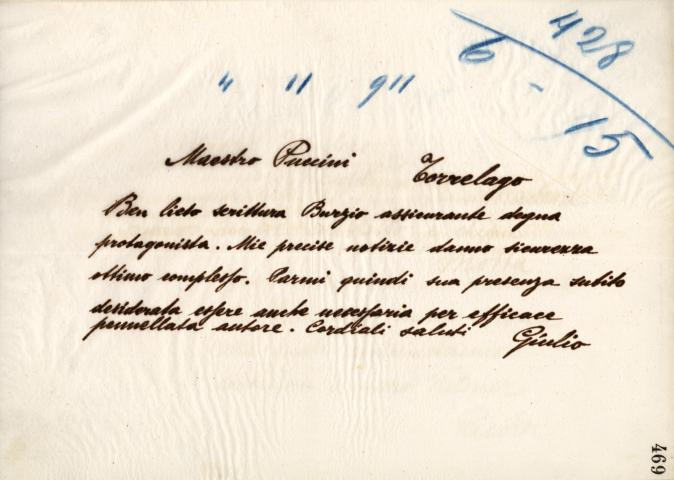 428
6 - 15
4 11 911
Maestro Puccini Torrelago
Ben lieto scrittura Burzio assicurante degna
protagonista. Mie precise notizie danno sicurezza
ottimo complesso. Parmi quindi sua presenza subito
desiderata essere anche necessaria per efficace
pennellata autore. Cordiali saluti Giulio
469